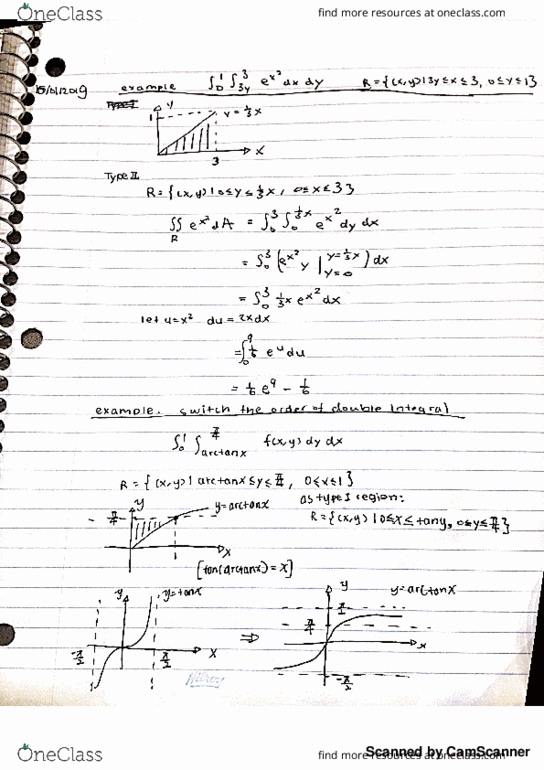 OneClass
find more resources at oneclass.com
15/01/2019 example ∫₀¹ ∫₃ᵧ³ e^x² dx dy R = {(x,y) | 3y ≤ x ≤ 3, 0 ≤ y ≤ 1}
y
1
y = 1/3 x
x
3
Type II
R = {(x,y) | 0 ≤ y ≤ 1/3 x, 0 ≤ x ≤ 3}
∬_R e^x² dA = ∫₀³ ∫₀^(1/3 x) e^x² dy dx
= ∫₀³ (e^x² y |_(y=0)^(y=1/3 x)) dx
= ∫₀³ 1/3 x e^x² dx
let u = x² du = 2x dx
= ∫₀⁹ 1/6 e^u du
= 1/6 e⁹ - 1/6
example. switch the order of double integral
∫₀¹ ∫_(arctanx)^(π/4) f(x,y) dy dx
R = {(x,y) | arctanx ≤ y ≤ π/4, 0 ≤ x ≤ 1}
as type I region:
R = {(x,y) | 0 ≤ x ≤ tany, 0 ≤ y ≤ π/4}
y
π/4
y = arctanx
x
[tan(arctanx) = x]
y
y = tanx
-π/2
π/2
x
⇒
y
y = arctanx
π/2
π/4
x
-π/2
OneClass
find more resources at oneclass.com
Scanned by CamScanner